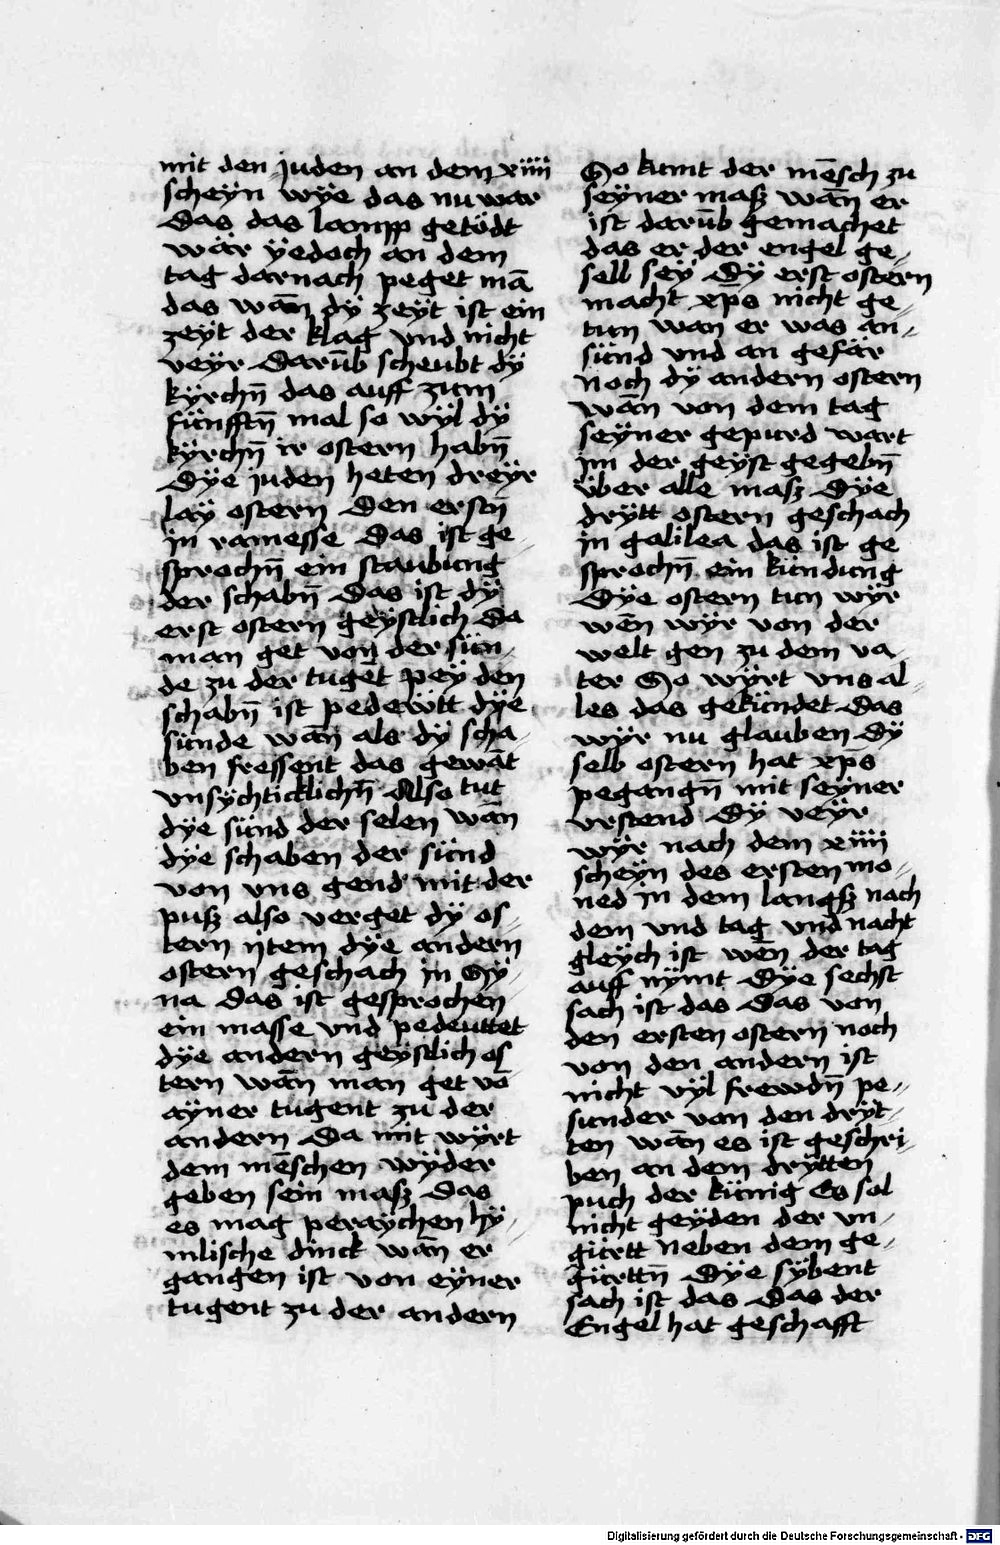 mit den juden an dem xiiii
scheyn wÿe das nu war
Das das lampp getödt
wär ÿedoch an dem
tag darnach peget mā
das wān dÿ zeÿt ist ein
zeÿt der klag vnd nicht
veÿr Darūb scheubt dÿ
kÿrchn̄ das auff zum
fünfftn̄ mal so wÿl dÿ
kÿrchn̄ ir ostern habn̄
Dÿe juden heten dreÿr
laÿ ostern Den erstn̄
in ramesse Das ist ge-
sprochn̄ ein staubung
der schabn̄ Das ist dÿ
erst ostern geÿstlich Da
man get von der sün-
de zu der tuget peÿ den
schabn̄ ist pedewtt dÿe
sünde wān als dÿ scha-
ben fressent das gewāt
vnsÿchticklichn̄ Also tut
dÿe sünd der selen wān
dÿe schaben der sünd
von vns gend mit der
pusz also verget dÿ os-
tern ijtem dÿe andern
ostern geschach in Sÿ-
na Das ist gesprochen
ein masse vnd pedeuttet
dÿe andern geÿstlich os
tern wān man get vō
aÿner tugent zu der
andern Da mit wÿrt
dem mēschen wÿder
geben sein masz Das
es mag peraÿchen hÿ-
mlische dinck wān er
gangen ist von eÿner
tugent zu der andern
So kumt der mēsch zu
seÿner masz wān er
ist darūb gemachet
das er der engel ge-
sell seÿ Dÿ erst ostern
macht xp̄s nicht ge-
tun wan er was an-
sünd vnd an gefär
noch dÿ andern ostern
wān von dem tag
seÿner gepurd wart
im der geÿst gegebn̄
über alle masz Dÿe
drÿtt ostern geschach
in galilea das ist ge
sprochn̄ ein kündung
Dÿe ostern tun wÿr
wēn wÿr von der
welt gen zu dem va-
ter So wÿrt vns al-
les das gekündet Das
wÿr nu glauben Dÿ
selb ostern hat xp̄s
pegangn̄ mit seÿner
vrstend Dÿ veÿr
wÿr nach dem xiiii
scheÿn des ersten mo-
ned in dem langsz nach
dem vnd tag vnd nacht
gleÿch ist wēn der tag
auff nÿmt Dÿe sechst
sach ist das Das von
den ersten ostern noch
von den andern ist
nicht vÿl frewdn̄ pe-
sunder von den drÿt-
ten wān es ist geschri-
ben an dem drÿtten
puch der künig Es sol
nicht geÿden der vn-
gürtt neben dem ge-
gürttn̄ Dÿe sÿbent
sach ist das Das der
Engel hat geschafft
Digitalisierung gefördert durch die Deutsche Forschungsgemeinschaft - DFG